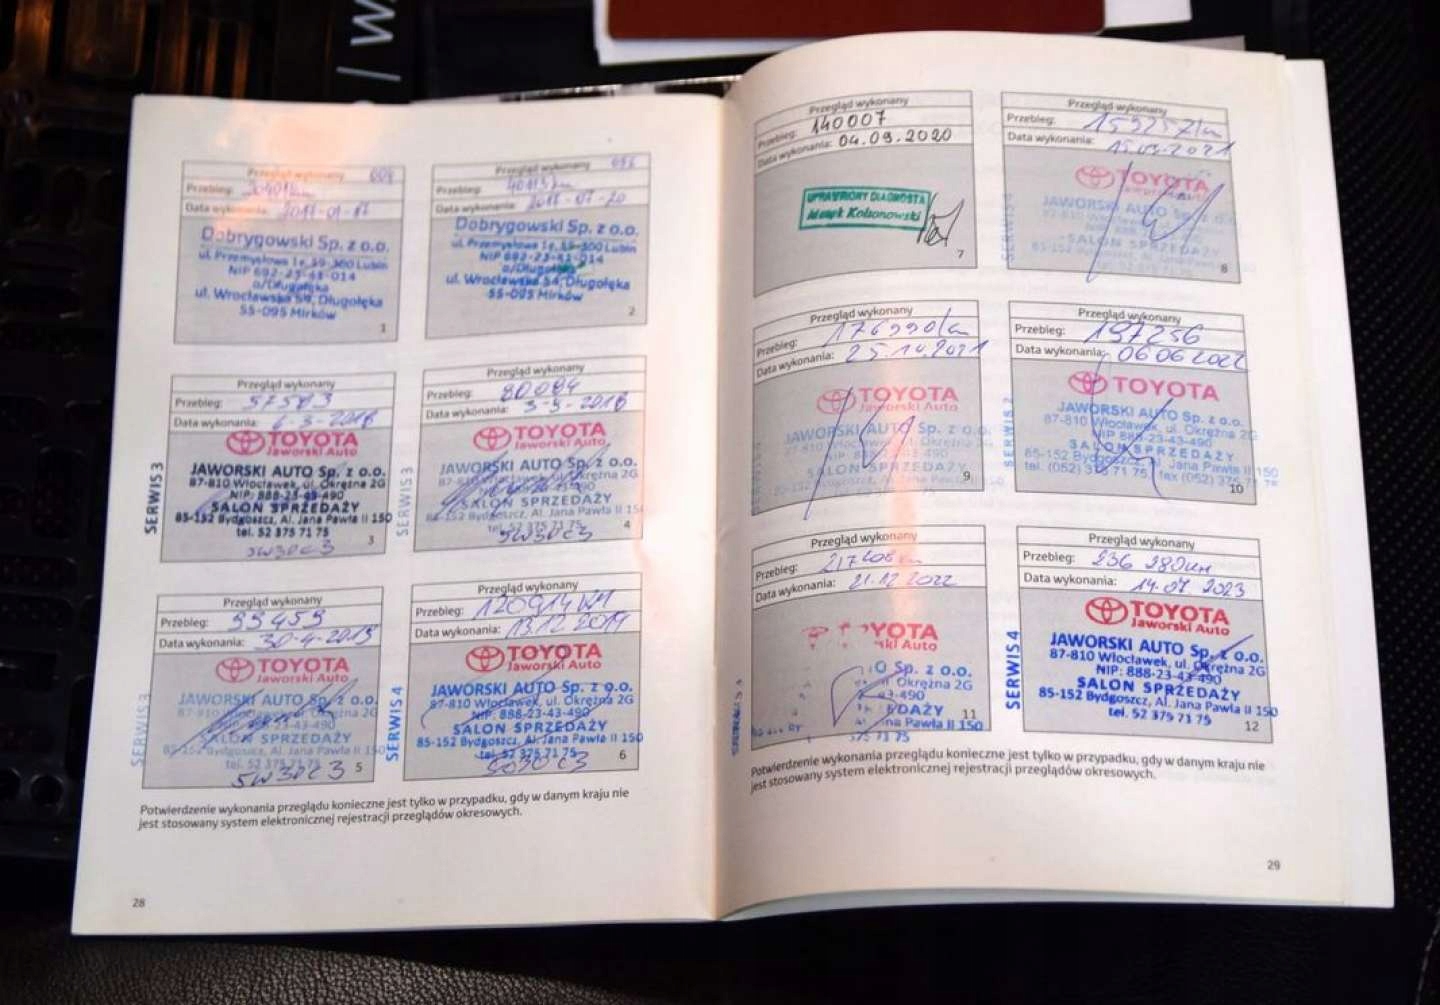 Przegląd wykonany
Przebieg:
Data wykonania: 2017-01-17
Dobrygowski Sp. z o.o.
ul. Przemysłowa 1e, 59-300 Lubin
NIP 692-23-41-014
o/Długołęka
ul. Wrocławska 54, Długołęka
55-095 Mirków
1
Przegląd wykonany
Przebieg:
Data wykonania: 2017-07-20
Dobrygowski Sp. z o.o.
ul. Przemysłowa 1e, 59-300 Lubin
NIP 692-23-41-014
o/Długołęka
ul. Wrocławska 54, Długołęka
55-095 Mirków
2
Przegląd wykonany
Przebieg: 57583
Data wykonania: 6-3-2018
TOYOTA
Jaworski Auto
SERWIS 3
JAWORSKI AUTO Sp. z o.o.
87-810 Włocławek, ul. Okrężna 2G
NIP: 888-23-43-490
SALON SPRZEDAŻY
85-152 Bydgoszcz, Al. Jana Pawła II 150
tel. 52 375 71 75
3
5W30C3
Przegląd wykonany
Przebieg: 80084
Data wykonania:
TOYOTA
Jaworski Auto
SERWIS 3
JAWORSKI AUTO Sp. z o.o.
Okrężna 2G
SALON SPRZEDAŻY
85-152 Bydgoszcz, Al. Jana Pawła II 150
tel. 52 375 71 75
4
5W30C3
Przegląd wykonany
Przebieg: 99459
Data wykonania: 30-4-2019
TOYOTA
Jaworski Auto
SERWIS 3
JAWORSKI AUTO Sp. z o.o.
SALON SPRZEDAŻY
85-152 Bydgoszcz, Al. Jana Pawła II 150
5
5W30C3
Przegląd wykonany
Przebieg: 120914KM
Data wykonania: 13.12.2019
TOYOTA
Jaworski Auto
SERWIS 4
JAWORSKI AUTO Sp. z o.o.
87-810 Włocławek, ul. Okrężna 2G
NIP: 888-23-43-490
SALON SPRZEDAŻY
85-152 Bydgoszcz, Al. Jana Pawła II 150
tel. 52 375 71 75
6
Potwierdzenie wykonania przeglądu konieczne jest tylko w przypadku, gdy w danym kraju nie
jest stosowany system elektronicznej rejestracji przeglądów okresowych.
28
Przegląd wykonany
Przebieg: 140007
Data wykonania: 04.09.2020
UPRAWNIONY DIAGNOSTA
7
Przegląd wykonany
Przebieg: 159257km
Data wykonania:
TOYOTA
JAWORSKI AUTO Sp.
SALON SPRZEDAŻY
8
Przegląd wykonany
Przebieg: 176990km
Data wykonania:
TOYOTA
Jaworski Auto
JAWORSKI AUTO Sp. z o.o.
SALON SPRZEDAŻY
9
Przegląd wykonany
Przebieg: 197256
Data wykonania: 06 06 2022
TOYOTA
JAWORSKI AUTO Sp. z o.o.
87-810 Włocławek, ul. Okrężna 2G
NIP 888-23-43-490
SALON SPRZEDAŻY
85-152 Bydgoszcz, Al. Jana Pawła II 150
tel. (052) 375 71 75, fax (052) 375 71
10
Przegląd wykonany
Przebieg:
Data wykonania: 21.12.2022
YOTA
ki Auto
O Sp. z o.o.
Okrężna 2G
-490
EDAŻY
na Pawła II 150
375 71 75
11
Przegląd wykonany
Przebieg: 236 280km
Data wykonania: 14.07.2023
TOYOTA
Jaworski Auto
SERWIS 4
JAWORSKI AUTO Sp. z o.o.
87-810 Włocławek, ul. Okrężna 2G
NIP: 888-23-43-490
SALON SPRZEDAŻY
85-152 Bydgoszcz, Al. Jana Pawła II 150
tel. 52 375 71 75
12
Potwierdzenie wykonania przeglądu konieczne jest tylko w przypadku, gdy w danym kraju nie
jest stosowany system elektronicznej rejestracji przeglądów okresowych.
29